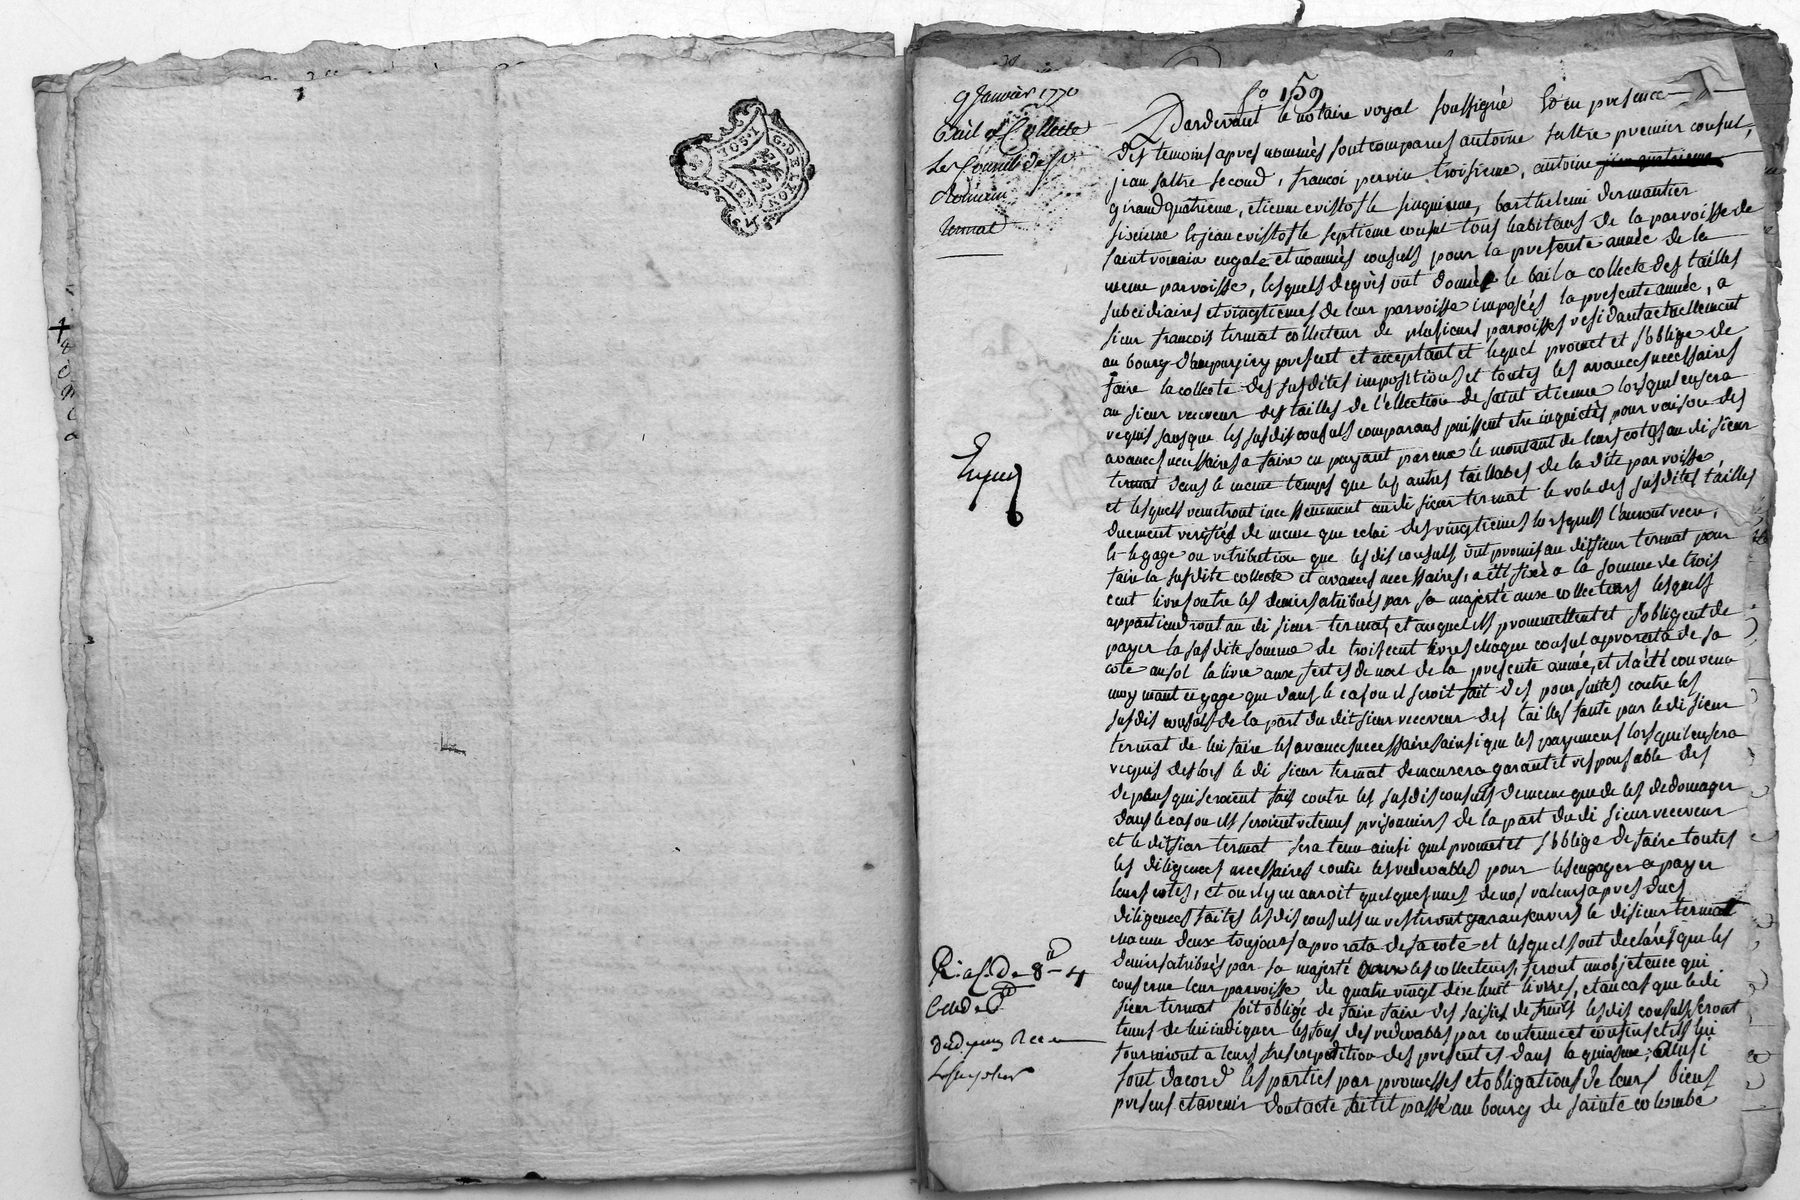 G. DE LYON
fo 159
9 Janvier 1770
Bail et Collecte
Les Consuls de St
Romain
termat
Expedié
Pardevant le notaire royal soussigné et en presence
des temoins apres nommés sont comparus antoine faltre premier consul,
jean faltre second, francoi perrin troisieme, antoine
girand quatrieme, etienne cristofle sinquieme, barthelemi dermantier
sixieme et jean cristofle septieme consul tous habitans de la parroisse de
saint romain et nommés consuls pour la presente année de la
meme parroisse, lesquels de grés ont donné le bail a collecte des tailles
subcidiaires et vingtiemes de leur parroisse imposées la presente année, a
sieur francois termat collecteur de plusieurs parroisses residant actuellement
au bourg present et acceptant et lequel promet et soblige de
faire la collecte des susdites impositions et toutes les avances necessaires
au sieur receveur des tailles de l'ellection de saint etienne lorsquil en sera
requis sans que les susdis consuls comparans puissent etre inquietés pour raison des
avances necessaires a faire en payant par eux le montant de leurs cotes au di sieur
termat dans le meme temps que les autres taillables de la dite parroisse,
et lesquels remetront incessemment au di sieur termat le role des susdites tailles
duement verifiés de meme que celui des vingtiemes lorsquils l'auront receu,
et le gage ou retribution que les dis consuls ont promis au dit sieur termat pour
faire la susdite collecte et avances necessaires, a été fixé a la somme de trois
cent livres outre les deniers atribués par sa majesté aux collecteurs lesquels
appartiendront au di sieur termat, et auquel ils prommettent et sobligent de
payer la susdite somme de trois cent livres chaque consul a prorata de sa
cote au sol la livre aux fertes de noel de la presente année, et il a été convenu
moymant ce gage que dans le cas ou il seroit fait des poursuites contre les
susdis consuls de la part du dit sieur receveur des tailles faute par le di sieur
termat de lui faire les avances necessaires ainsi que les payemens lorsquil en sera
requis des lors le di sieur termat demeurera garant et responsable des
depens qui seroient fais contre les susdis consuls de meme que de les dedomager
dans le cas ou ils seroient retenus prisonniers de la part du di sieur receveur
et le dit sieur termat sera tenu ainsi quil promet et soblige de faire toutes
les diligences necessaires contre les redevables pour les engager a payer
leurs cotes, et ou il y en auroit quelques unes de nos valeurs apres dues
diligences faites les dis consuls en resteront garans envers le di sieur termat
chacun deux toujours a prorata de sa cote et lesquels ont declarés que les
deniers atribués par sa majesté aux les collecteurs, feront un objet en ce qui
conserne leur parroisse de quatre vingt dix huit livres, et au cas que le di
sieur termat soit obligé de faire faire des saisies de fruits les dis consuls seront
tenus de lui indiquer les fons des redevables par contenue et confins et ils lui
fourniront a leurs fres expedition des presentes dans la quinzene, ainsi
sont dacord les parties par promesses et obligations de leurs biens
presens et avenir dont acte fait et passé au bourg de sainte colombe